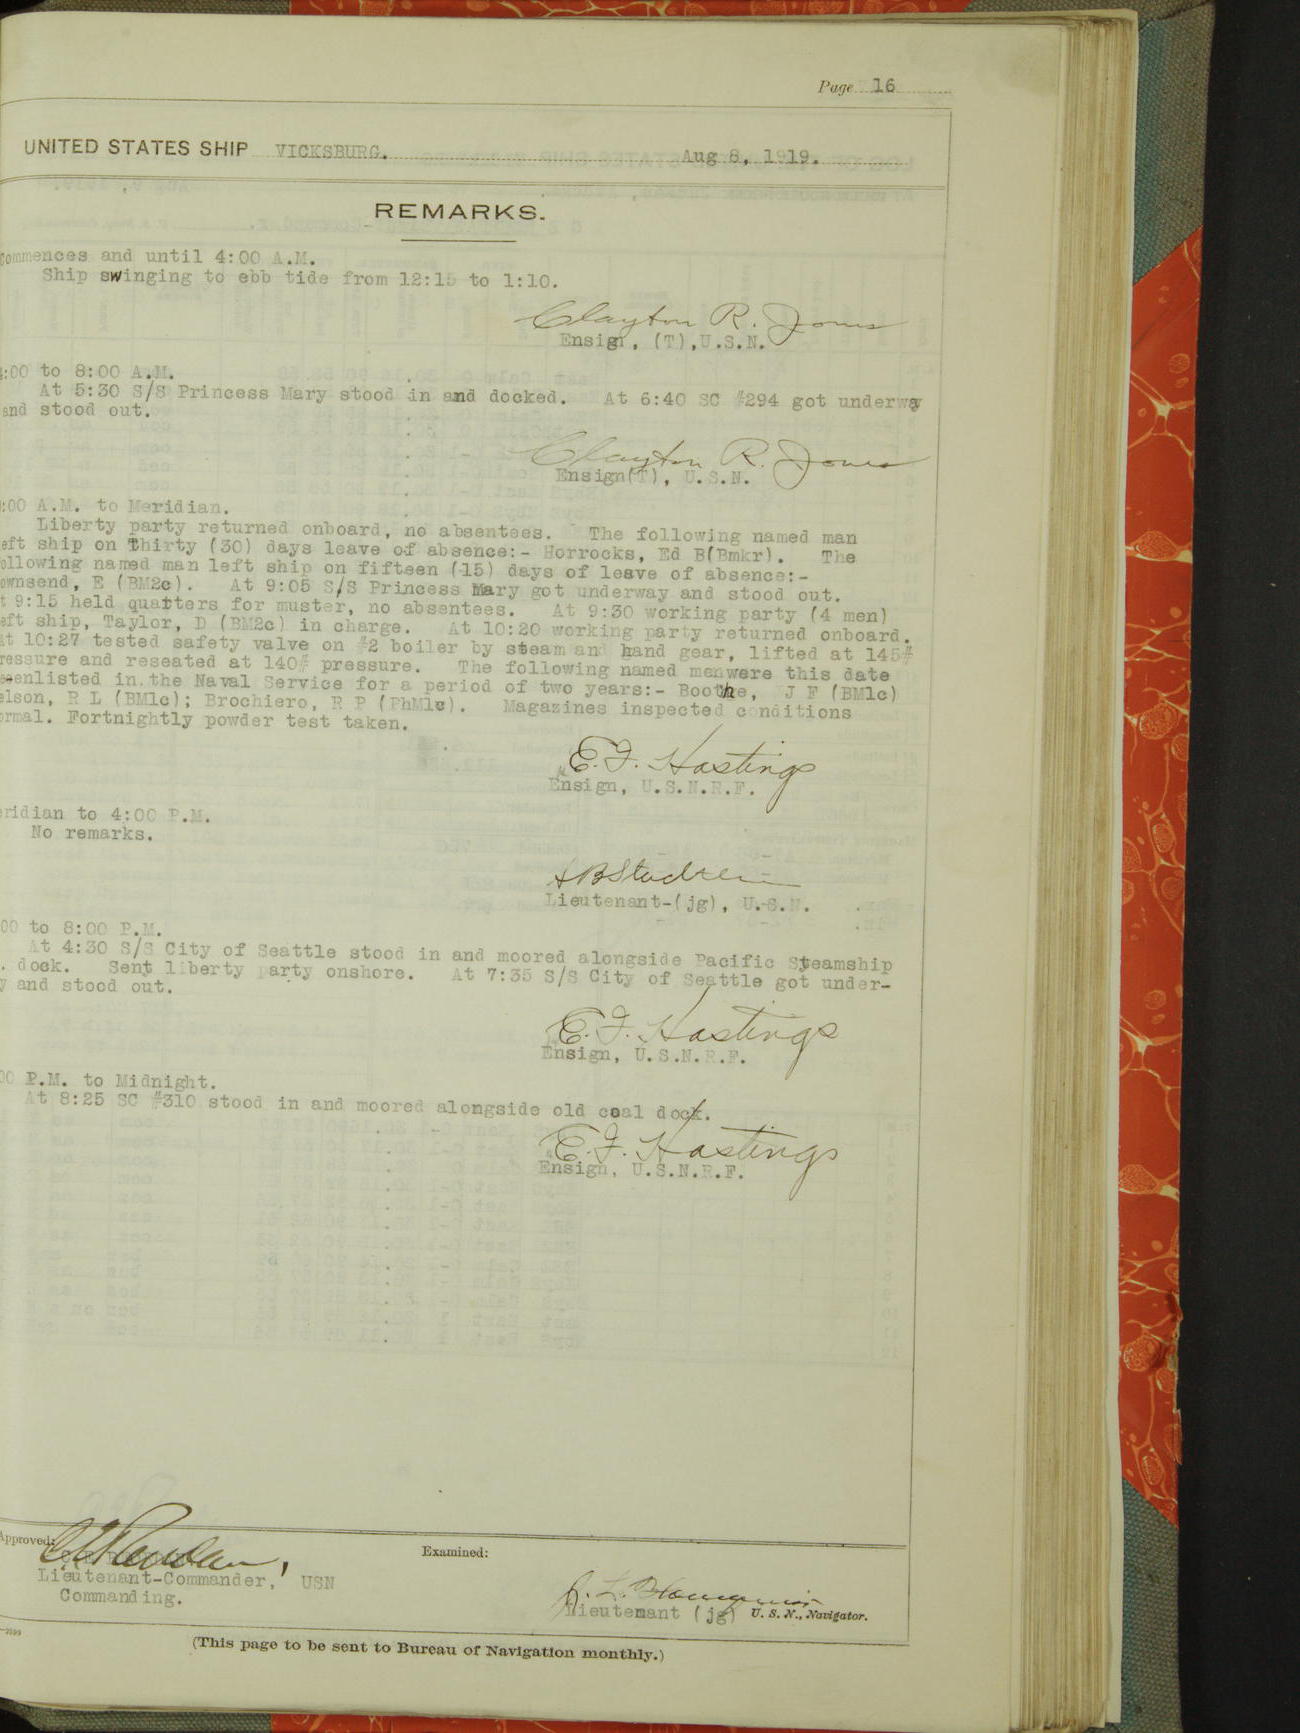 Page 16
UNITED STATES SHIP VICKSBURG. Aug 8, 1919.
REMARKS.
commences and until 4:00 A.M.
Ship swinging to ebb tide from 12:15 to 1:10.
Clayton R. Jones
Ensign, (T), U.S.N.
4:00 to 8:00 A.M.
At 5:30 S/S Princess Mary stood in and docked. At 6:40 SC #294 got underway
and stood out.
Clayton R. Jones
Ensign(T), U.S.N.
:00 A.M. to Meridian.
Liberty party returned onboard, no absentees. The following named man
eft ship on thirty (30) days leave of absence:- Horrocks, Ed B(Bmkr). The
ollowing named man left ship on fifteen (15) days of leave of absence:-
ownsend, E (BM2c). At 9:05 S/S Princess Mary got underway and stood out.
t 9:15 held quatters for muster, no absentees. At 9:30 working party (4 men)
eft ship, Taylor, D (BM2c) in charge. At 10:20 working party returned onboard.
At 10:27 tested safety valve on #2 boiler by steam and hand gear, lifted at 145#
ressure and reseated at 140# pressure. The following named men were this date
e-enlisted in the Naval Service for a period of two years:- Boothe, J F (BM1c)
elson, R L (BM1c); Brochiero, R P (PhM1c). Magazines inspected conditions
ormal. Fortnightly powder test taken.
E. F. Hastings
Ensign, U.S.N.R.F.
eridian to 4:00 P.M.
No remarks.
Lieutenant-(jg), U.S.N.
00 to 8:00 P.M.
At 4:30 S/S City of Seattle stood in and moored alongside Pacific Steamship
. dock. Sent liberty party onshore. At 7:35 S/S City of Seattle got under-
y and stood out.
E. F. Hastings
Ensign, U.S.N.R.F.
00 P.M. to Midnight.
At 8:25 SC #310 stood in and moored alongside old coal dock.
E. F. Hastings
Ensign, U.S.N.R.F.
Approved:
Examined:
Lieutenant-Commander, USN
Commanding.
Lieutenant (jg) U. S. N., Navigator.
(This page to be sent to Bureau of Navigation monthly.)